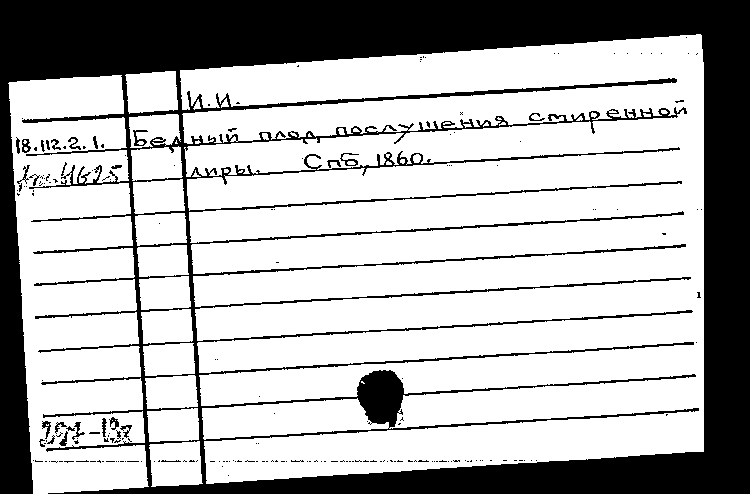 И. И.
18.112.2.1. Бедный плод послушения смиренной
лиры. Спб, 1860.